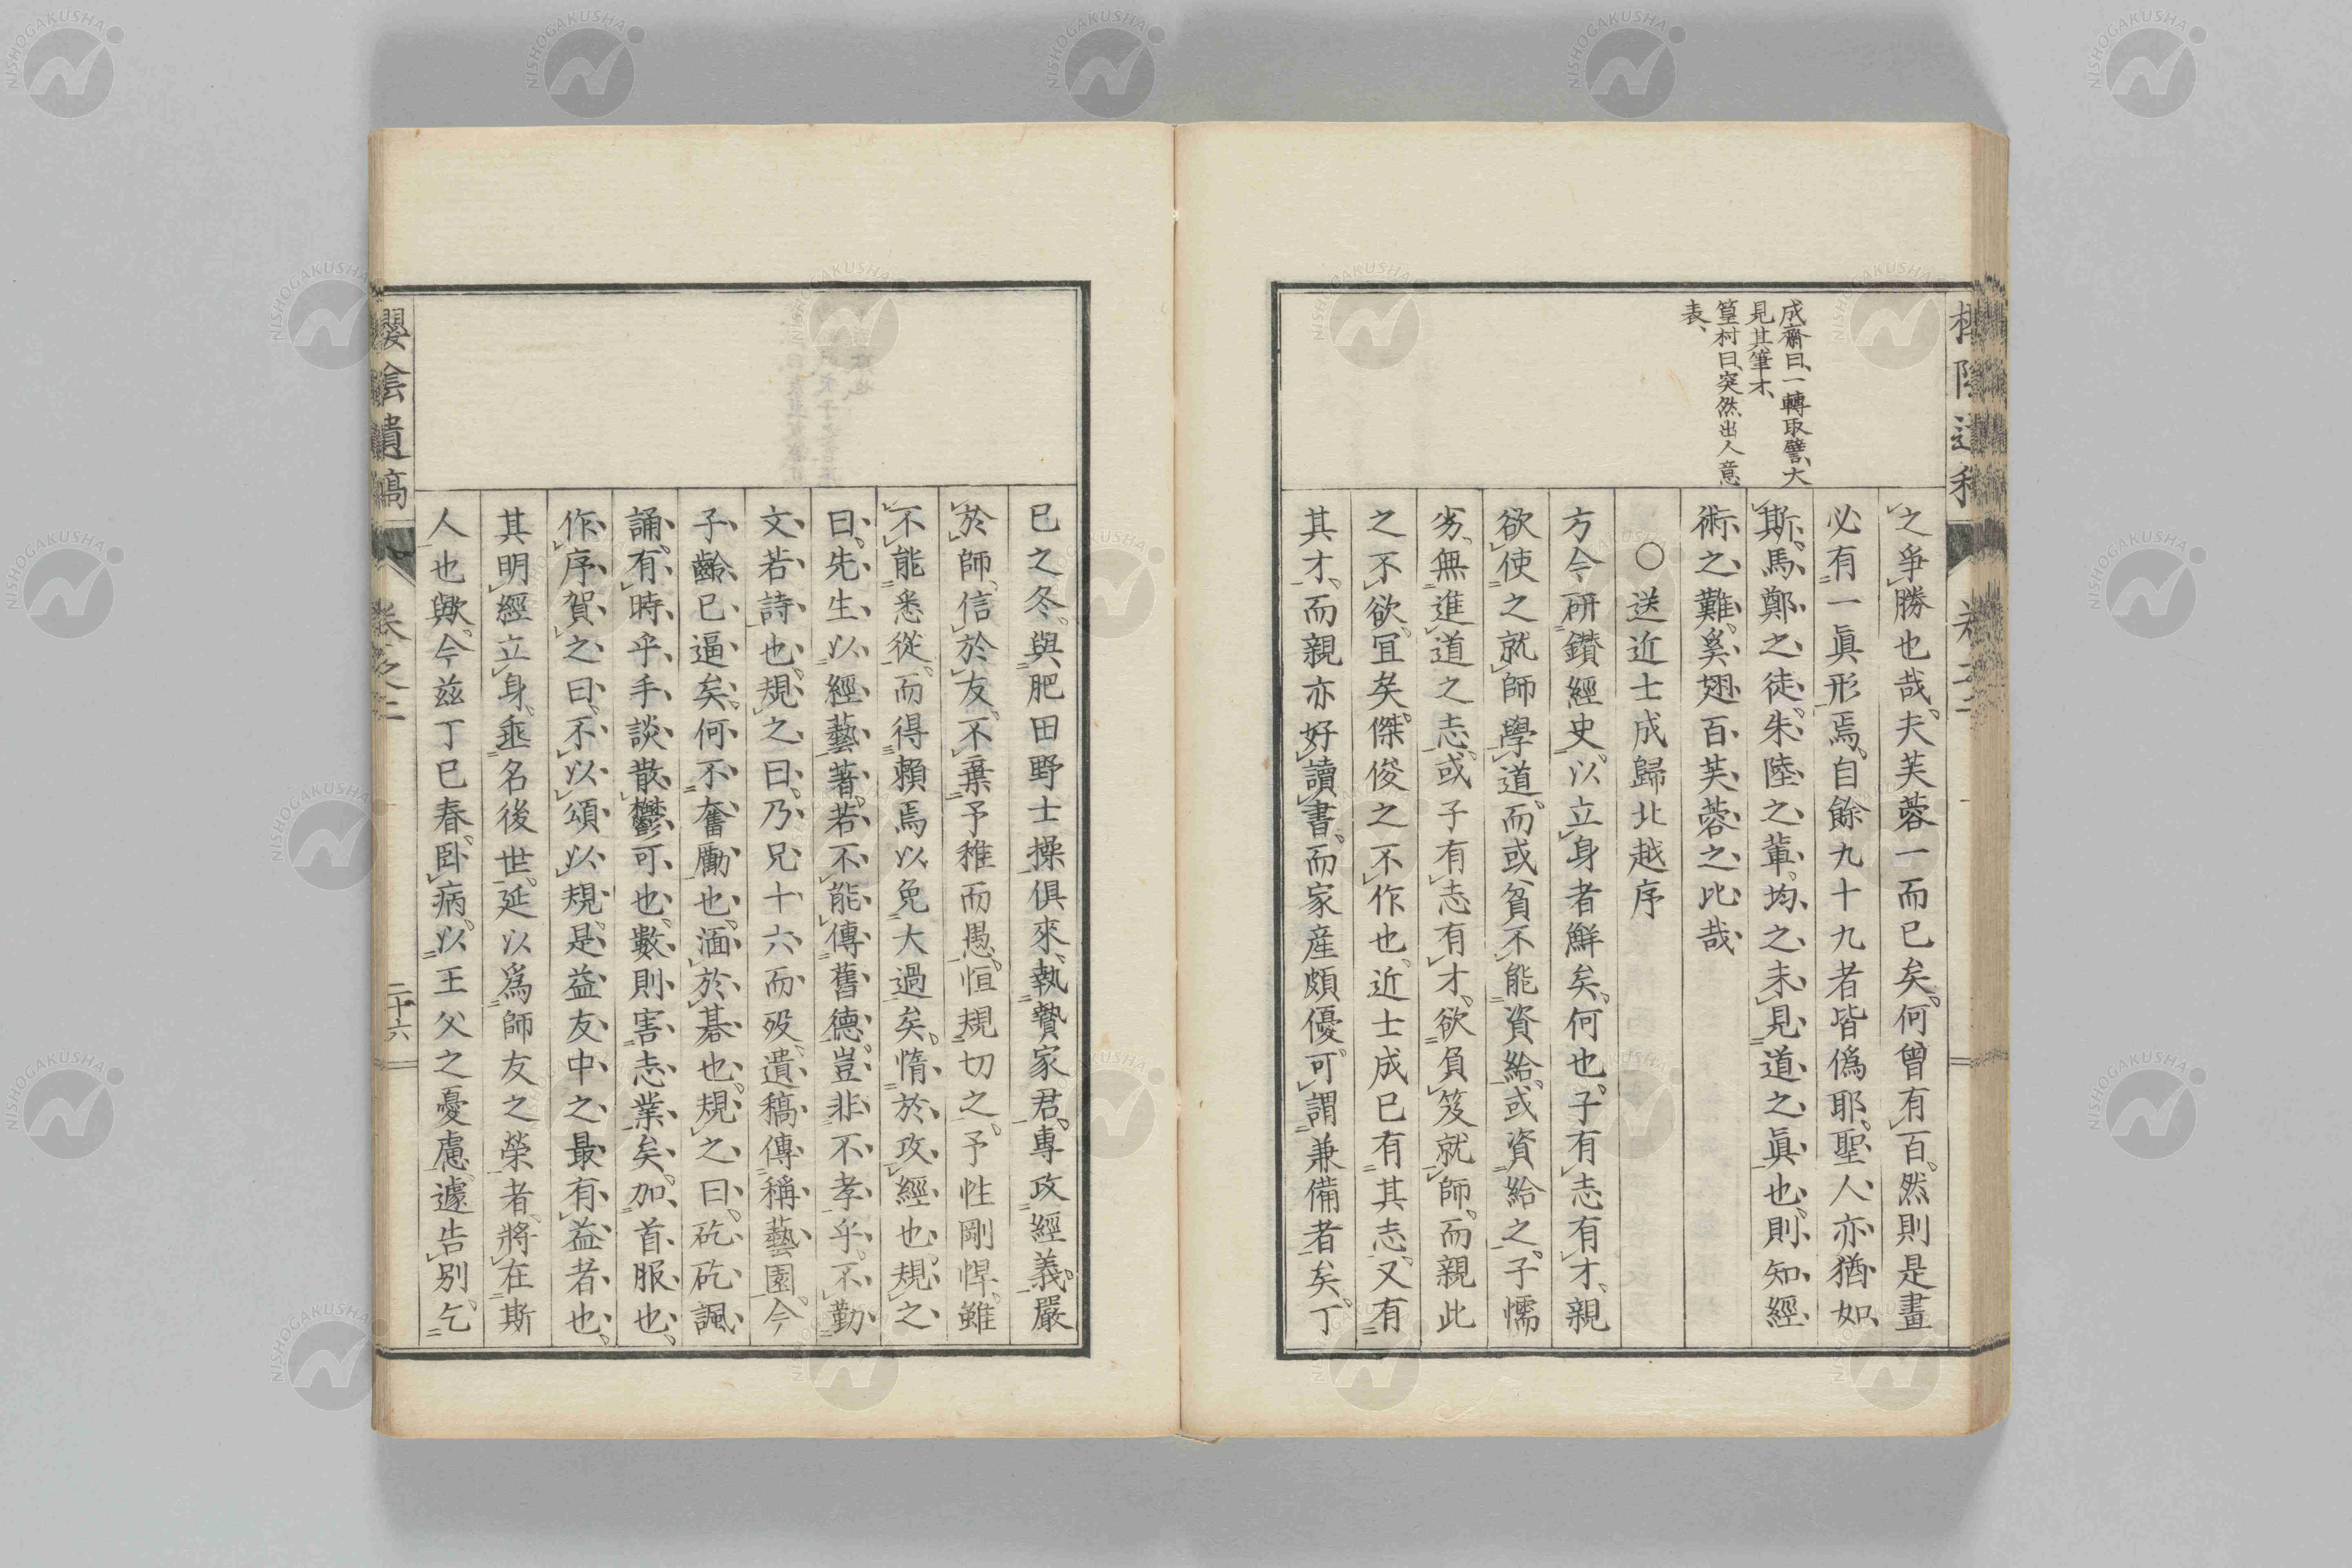 成齋曰、一轉取譬、大
見其筆才、
篁村曰、突然出人意
表、
之爭勝也哉。夫芙蓉一而已矣。何曾有百。然則是畫
必有一眞形焉。自餘九十九者皆僞耶。聖人亦猶如
斯。馬鄭之徒。朱陸之輩。均之未見道之眞也。則知經
術之難。奚翅百芙蓉之比哉
○送近士成歸北越序
方今研鑚經史。以立身者鮮矣。何也。子有志有才、親
欲使之就師學道。而或貧不能資給。或資給之。子懦
劣。無進道之志。或子有志有才、欲負笈就師。而親此
之不欲。宜矣。傑俊之不作也。近士成已有其志。又有
其才。而親亦好讀書。而家産頗優。可謂兼備者矣。丁
巳之冬。與肥田野士操俱來。執贄家君。專攻經義。嚴
於師。信於友。不棄予稚而愚。恒規切之。予性剛悍。雖
不能悉從。而得賴焉以免大過矣。惰於攻經也。規之
曰。先生以經藝著。若不能傳舊德。豈非不孝乎。不勤
文若詩也。規之曰。乃兄十六而歿。遺稿傳稱藝園。今
子齡已逼矣。何不奮勵也。湎於碁也。規之曰。矻矻諷
誦。有時乎手談散鬱可也。數則害志業矣。加首服也。
作序賀之曰。不以頌以規。是益友中之最有益者也。
其明經立身。垂名後世。延以爲師友之榮者。將在斯
人也歟。今茲丁巳春。臥病。以王父之憂慮。遽告別。乞
櫻陰遺稿
卷之二
二十六